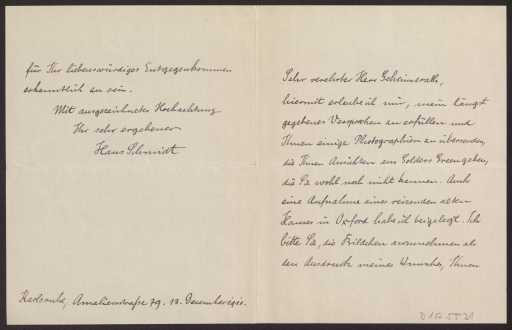 Sehr verehrter Herr Geheimrath,
hiermit erlaube ich mir, mein längst
gegebenes Versprechen zu erfüllen und
Ihnen einige Photographien zu übersenden,
die Ihnen Ansichten aus Golders Green geben,
die Sie wohl noch nicht kennen. Auch
eine Aufnahme eines reizenden alten
Hauses in Oxford habe ich beigelegt. Ich
bitte Sie, die Bildchen anzunehmen als
den Ausdruck meines Wunsches, Ihnen
für Ihr liebenswürdiges Entgegenkommen
erkenntlich zu sein.
Mit ausgezeichneter Hochachtung
Ihr sehr ergebener
Hans Schmidt
Karlsruhe, Amalienstraße 79. 18. Dezember